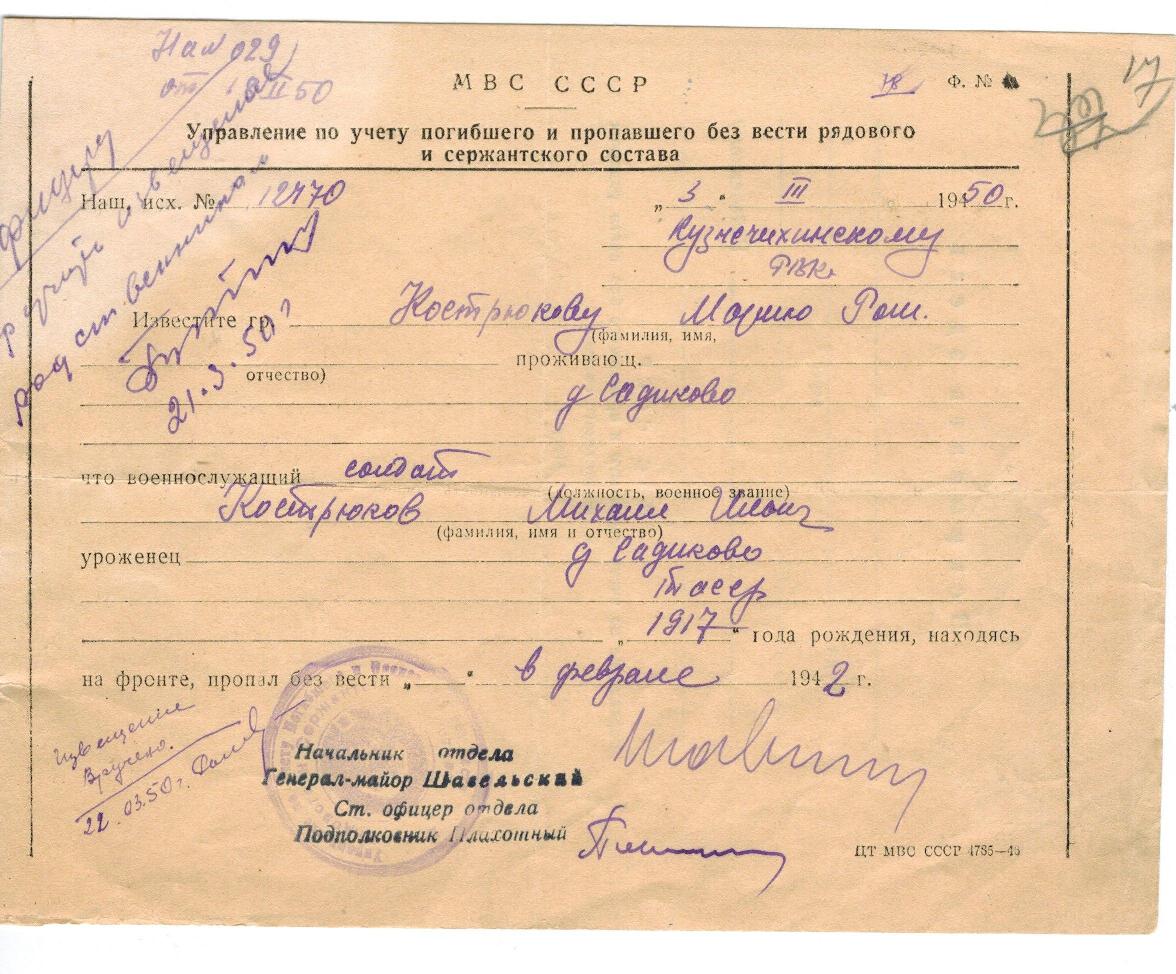 МВС СССР
18 Ф. №
17
Управление по учету погибшего и пропавшего без вести рядового
и сержантского состава
Наш. исх. № 12470 „ 3 “ III 1950 г.
Кузнечихинскому
РВК
Известите гр. Кострюкову Марию Ром.
(фамилия, имя,
проживающ.
отчество)
д Садиково
что военнослужащий солдат
(должность, военное звание)
Кострюков Михаил Ильич
(фамилия, имя и отчество)
уроженец д Садиково
Тасср
„ 1917 “ года рождения, находясь
на фронте, пропал без вести „ “ в феврале 1942 г.
Начальник отдела
Генерал-майор Шавельский
Ст. офицер отдела
Подполковник Плахотный
ЦТ МВС СССР 4785—48
Извещение
вручено.
22.03.50г.
извещение
родственникам
21.3.50г